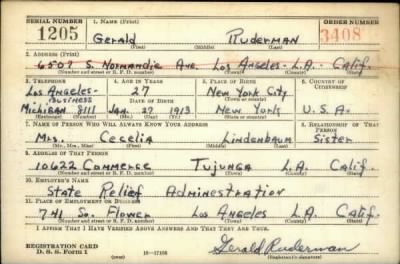 SERIAL NUMBER 1. NAME (Print) ORDER NUMBER
1205 Gerald Ruderman 3408
(First) (Middle) (Last)
2. ADDRESS (Print)
6507 S. Normandie Ave. Los Angeles - L.A. Calif.
(Number and street or R. F. D. number) (Town) (County) (State)
3. TELEPHONE 4. AGE IN YEARS 5. PLACE OF BIRTH 6. COUNTRY OF CITIZENSHIP
Los Angeles - 27 New York City
Business DATE OF BIRTH (Town or county)
Michigan 8111 Jan. 27 1913 New York U.S.A.
(Exchange) (Number) (Mo.) (Day) (Yr.) (State or country)
7. NAME OF PERSON WHO WILL ALWAYS KNOW YOUR ADDRESS 8. RELATIONSHIP OF THAT PERSON
Mrs. Cecelia Lindenbaum Sister
(Mr., Mrs., Miss) (First) (Middle) (Last)
9. ADDRESS OF THAT PERSON
10622 Commerce Tujunga L.A. Calif.
(Number and street or R. F. D. number) (Town) (County) (State)
10. EMPLOYER'S NAME
State Relief Administration
11. PLACE OF EMPLOYMENT OR BUSINESS
741 So. Flower Los Angeles L.A. Calif.
(Number and street or R. F. D. number) (Town) (County) (State)
I AFFIRM THAT I HAVE VERIFIED ABOVE ANSWERS AND THAT THEY ARE TRUE.
REGISTRATION CARD
D. S. S. Form 1 16-17105 Gerald Ruderman
(Registrant's signature)